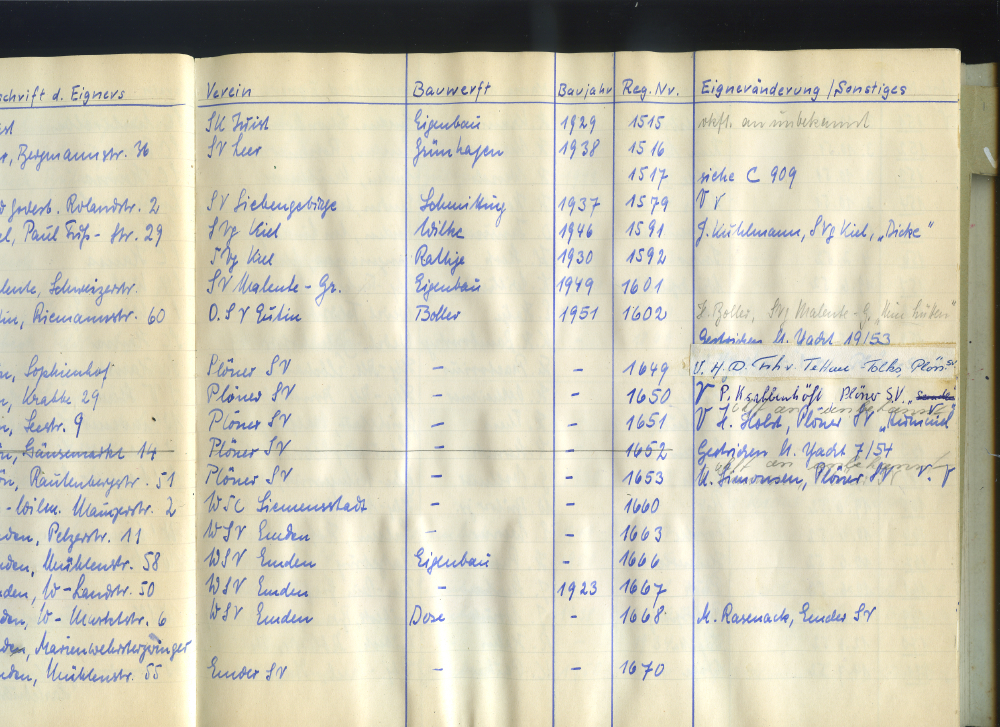 schrift d. Eigners Verein Bauwerft Baujahr Reg. Nr. Eigneränderung / Sonstiges
SK Juist Eigenbau 1929 1515 vkft. an unbekannt
Bergmannstr. 36 SV Leer Grünhagen 1938 1516
1517 siehe C 909
Godesb. Rolandstr. 2 SV Siebengebirge 1937 1579 V v
Paul Fuß-Str. 29 SVg Kiel Wilke 1946 1591 J. Kühlmann, SVg Kiel, „Dicke"
SVg Kiel Rathje 1930 1592
lente, Schweizerstr. SV Malente-Gr. Eigenbau 1949 1601
tin, Riemannstr. 60 O.S.V Eutin Boller 1951 1602 Boller, SVg Malente-G.
Gestrichen lt. Yacht 19/53
n, Sophienhof Plöner SV - - 1649 V. H.D. v. Tettau Plön
n, Kratte 29 Plöner SV - - 1650 V P. Plöner S.V.
n, Seestr. 9 Plöner SV - - 1651 V H. Holst, Plöner SV
n, Gänsemarkt 14 Plöner SV - - 1652 Gestrichen lt. Yacht 7/54
ön, Rautenbergstr. 51 Plöner SV - - 1653 U. Simonsen, Plöner SV V. V
-Wilm. Maingerstr. 2 WSC Siemensstadt - - 1660
den, Pelzerstr. 11 WSV Emden - - 1663
den, Mühlenstr. 58 WSV Emden Eigenbau - 1666
den, W-Landstr. 50 WSV Emden - 1923 1667
den, W- 6 WSV Emden Dose - 1668 M. Rasenack, Emder SV
den, Marienwehrsterzwinger
den, Mühlenstr. 55 Emder SV - - 1670